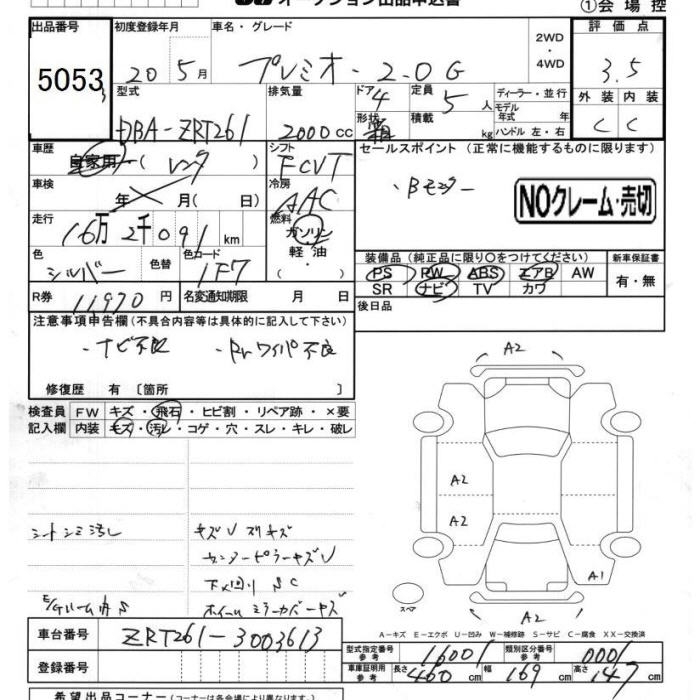 オークション出品申込書
①会場控
出品番号
5053
初度登録年月
20 5月
車名・グレード
プレミオ - 2.0G
2WD・4WD
評価点
3.5
型式
DBA-ZRT261
排気量
2000cc
ドア 4
形状
定員 5人
積載 kg
ディーラー・並行
モデル年式 年
ハンドル 左・右
外装 内装
C C
車歴
自家用・( レンタ )
シフト
FCVT
セールスポイント (正常に機能するものに限ります)
・Bモニター
NOクレーム・売切
車検
年 月( 日)
冷房
AAC
走行
16万2千091km
燃料
ガソリン
軽油・( )
色
シルバー
色替
色カード
1F7
装備品(純正品に限り○をつけてください)
PS PW ABS エアB AW
SR ナビ TV カワ
新車保証書
有・無
R券 11,970円
名変通知期限 月 日
後日品
注意事項申告欄(不具合内容等は具体的に記入して下さい)
・ナビ不良 ・Rrワイパ不良
修復歴 有 [箇所 ]
検査員記入欄
FW キズ・飛石・ヒビ割・リペア跡・×要
内装 キズ・汚レ・コゲ・穴・スレ・キレ・破レ
シートシミ汚レ
キズU スリキズ
センターピラーキズU
下廻り SC
E/Gルーム内S
ホイールミラーカバーキズ
A2
A2
A2
A1
A2
スペア
A-キズ E-エクボ U-凹み W-補修跡 S-サビ C-腐食 XX-交換済
車台番号
ZRT261-3003613
登録番号
型式指定番号 参考 16001
類別区分番号 参考 0001
車庫証明用 参考 長さ 460cm 幅 169cm 高さ 147cm
希望出品コーナー(コーナーは各会場により異なります)